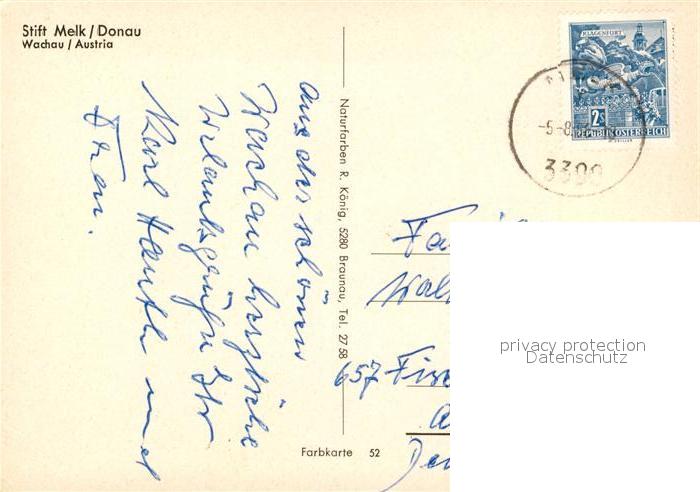 Stift Melk / Donau
Wachau / Austria
KLAGENFURT
2s
REPUBLIK ÖSTERREICH
-5-8
3300
aus der schönen
Wachau herzliche
Urlaubsgrüße Ihr
Karl und
Frau.
Naturfarben R. König, 5280 Braunau, Tel. 27 58
Fa
Wal
657 Fis
De
privacy protection
Datenschutz
Farbkarte 52